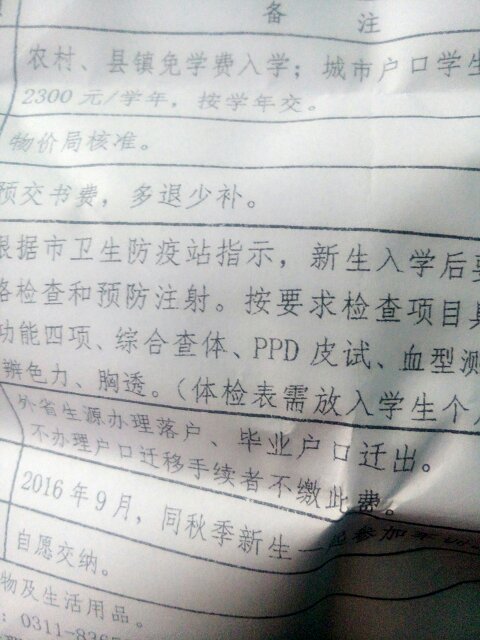 备 注
农村、县镇免学费入学；城市户口学生
2300 元/学年，按学年交。
物价局核准。
预交书费，多退少补。
根据市卫生防疫站指示，新生入学后要
格检查和预防注射。按要求检查项目具
功能四项、综合查体、PPD 皮试、血型测
辨色力、胸透。（体检表需放入学生个人
外省生源办理落户、毕业户口迁出。
不办理户口迁移手续者不缴此费。
2016 年 9 月，同秋季新生一起参加
自愿交纳。
物及生活用品。
: 0311-836